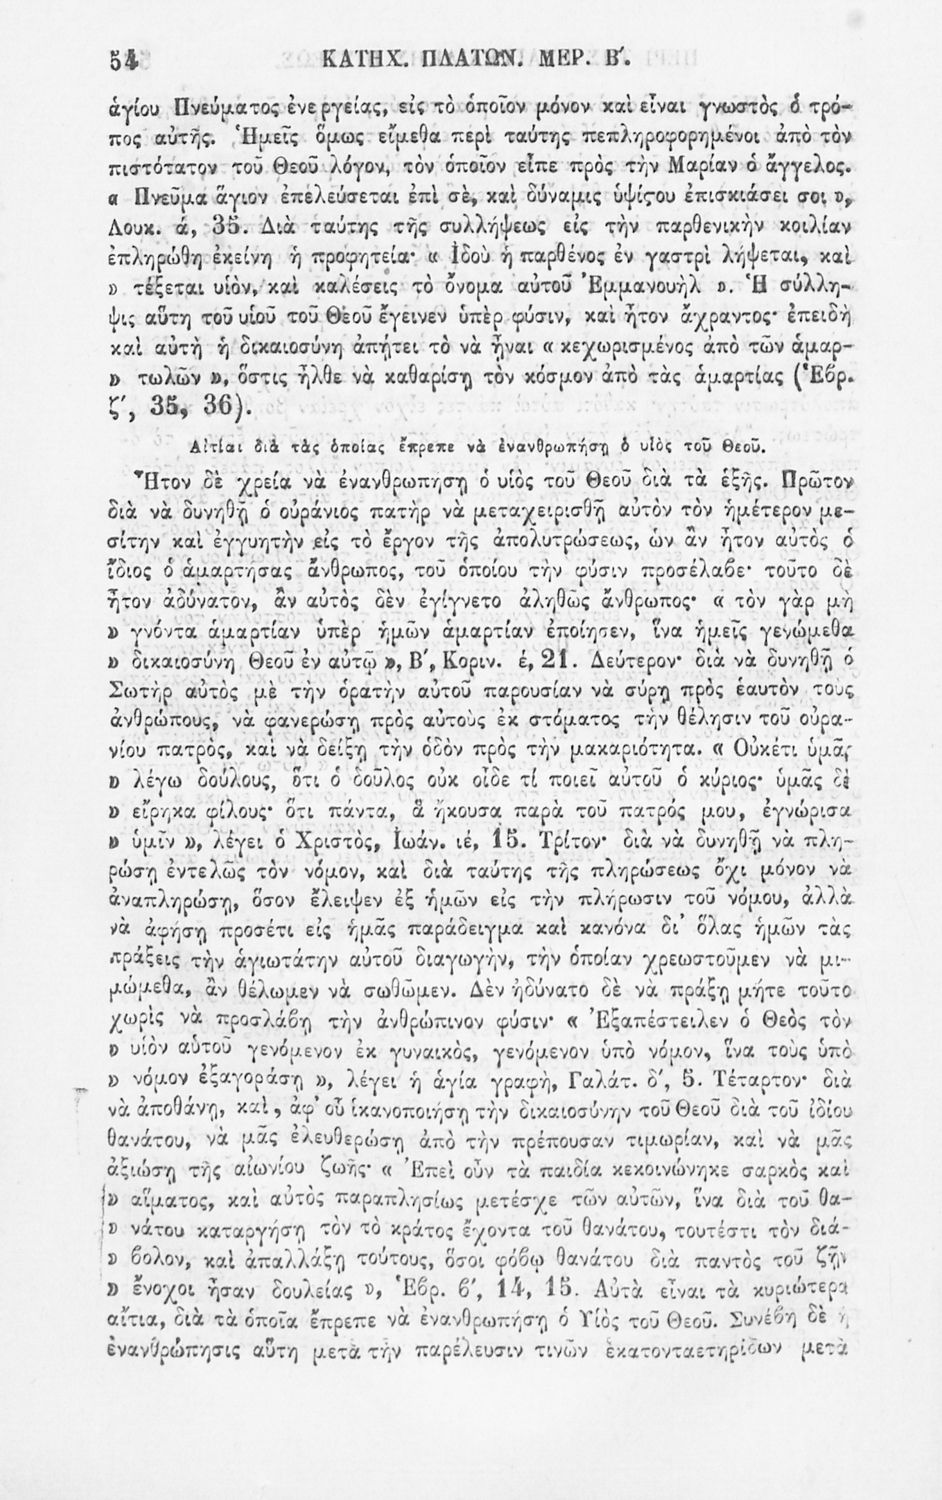 54 ΚΑΤΗΧ. ΠΛΑΤΩΝ. ΜΕΡ. Β΄.
ἁγίου Πνεύματος ἐνεργείας, εἰς τὸ ὁποῖον μόνον καὶ εἶναι γνωστὸς ὁ τρό-
πος αὐτῆς. Ἡμεῖς ὅμως εἴμεθα περὶ ταύτης πεπληροφορημένοι ἀπὸ τὸν
πιστότατον τοῦ Θεοῦ λόγον, τὸν ὁποῖον εἶπε πρὸς τὴν Μαρίαν ὁ ἄγγελος.
« Πνεῦμα ἅγιον ἐπελεύσεται ἐπὶ σὲ, καὶ δύναμις ὑψίςου ἐπισκιάσει σοι »,
Λουκ. ά, 35. Διὰ ταύτης τῆς συλλήψεως εἰς τὴν παρθενικὴν κοιλίαν
ἐπληρώθη ἐκείνη ἡ προφητεία· « Ἰδοὺ ἡ παρθένος ἐν γαστρὶ λήψεται, καὶ
» τέξεται υἱὸν, καὶ καλέσεις τὸ ὄνομα αὐτοῦ Ἐμμανουὴλ ». Ἡ σύλλη-
ψις αὕτη τοῦ υἱοῦ τοῦ Θεοῦ ἔγεινεν ὑπὲρ φύσιν, καὶ ἦτον ἄχραντος· ἐπειδὴ
καὶ αὐτὴ ἡ δικαιοσύνη ἀπῄτει τὸ νὰ ἦναι « κεχωρισμένος ἀπὸ τῶν ἁμαρ-
» τωλῶν », ὅστις ἦλθε νὰ καθαρίσῃ τὸν κόσμον ἀπὸ τὰς ἁμαρτίας (Ἑβρ.
ζ΄, 35, 36).
Αἰτίαι διὰ τὰς ὁποίας ἔπρεπε νὰ ἐνανθρωπήσῃ ὁ υἱὸς τοῦ Θεοῦ.
Ἦτον δὲ χρεία νὰ ἐνανθρωπησῃ ὁ υἱὸς τοῦ Θεοῦ διὰ τὰ ἑξῆς. Πρῶτον
διὰ νὰ δυνηθῇ ὁ οὐράνιος πατὴρ νὰ μεταχειρισθῇ αὐτὸν τὸν ἡμέτερον με-
σίτην καὶ ἐγγυητὴν εἰς τὸ ἔργον τῆς ἀπολυτρώσεως, ὡν ἂν ἦτον αὐτὸς ὁ
ἴδιος ὁ ἁμαρτήσας ἄνθρωπος, τοῦ ὁποίου τὴν φύσιν προσέλαβε· τοῦτο δὲ
ἦτον ἀδύνατον, ἂν αὐτὸς δὲν ἐγίγνετο ἀληθῶς ἄνθρωπος· « τὸν γὰρ μὴ
» γνόντα ἁμαρτίαν ὑπὲρ ἡμῶν ἁμαρτίαν ἐποίησεν, ἵνα ἡμεῖς γενώμεθα
» δικαιοσύνη Θεοῦ ἐν αὐτῷ », Β΄, Κοριν. έ, 21. Δεύτερον· διὰ νὰ δυνηθῇ ὁ
Σωτὴρ αὐτὸς μὲ τὴν ὁρατὴν αὐτοῦ παρουσίαν νὰ σύρῃ πρὸς ἑαυτὸν τοὺς
ἀνθρώπους, νὰ φανερώσῃ πρὸς αὐτοὺς ἐκ στόματος τὴν θέλησιν τοῦ οὐρα-
νίου πατρὸς, καὶ νὰ δείξῃ τὴν ὁδὸν πρὸς τὴν μακαριότητα. « Οὐκέτι ὑμᾶς
» λέγω δούλους, ὅτι ὁ δοῦλος οὐκ οἶδε τί ποιεῖ αὐτοῦ ὁ κύριος· ὑμᾶς δὲ
» εἴρηκα φίλους· ὅτι πάντα, ἃ ἤκουσα παρὰ τοῦ πατρός μου, ἐγνώρισα
» ὑμῖν », λέγει ὁ Χριστὸς, Ἰωάν. ιέ, 15. Τρίτον· διὰ νὰ δυνηθῇ νὰ πλη-
ρώσῃ ἐντελῶς τὸν νόμον, καὶ διὰ ταύτης τῆς πληρώσεως ὄχι μόνον νὰ
ἀναπληρώσῃ, ὅσον ἔλειψεν ἐξ ἡμῶν εἰς τὴν πλήρωσιν τοῦ νόμου, ἀλλὰ
νὰ ἀφήσῃ προσέτι εἰς ἡμᾶς παράδειγμα καὶ κανόνα δι᾽ ὅλας ἡμῶν τὰς
πράξεις τὴν ἁγιωτάτην αὐτοῦ διαγωγὴν, τὴν ὁποίαν χρεωστοῦμεν νὰ μι-
μώμεθα, ἂν θέλωμεν νὰ σωθῶμεν. Δὲν ἠδύνατο δὲ νὰ πράξῃ μήτε τοῦτο
χωρὶς νὰ προσλάβῃ τὴν ἀνθρώπινον φύσιν· « Ἐξαπέστειλεν ὁ Θεὸς τὸν
» υἱὸν αὑτοῦ γενόμενον ἐκ γυναικὸς, γενόμενον ὑπὸ νόμον, ἵνα τοὺς ὑπὸ
» νόμον ἐξαγοράσῃ », λέγει ἡ ἁγία γραφὴ, Γαλάτ. δ΄, 5. Τέταρτον· διὰ
νὰ ἀποθάνῃ, καὶ, ἀφ᾽ οὗ ἱκανοποιήσῃ τὴν δικαιοσύνην τοῦ Θεοῦ διὰ τοῦ ἰδίου
θανάτου, νὰ μᾶς ἐλευθερώσῃ ἀπὸ τὴν πρέπουσαν τιμωρίαν, καὶ νὰ μᾶς
ἀξιώσῃ τῆς αἰωνίου ζωῆς· « Ἐπεὶ οὖν τὰ παιδία κεκοινώνηκε σαρκὸς καὶ
» αἵματος, καὶ αὐτὸς παραπλησίως μετέσχε τῶν αὐτῶν, ἵνα διὰ τοῦ θα-
» νάτου καταργήσῃ τὸν τὸ κράτος ἔχοντα τοῦ θανάτου, τουτέστι τὸν διά-
» βολον, καὶ ἀπαλλάξῃ τούτους, ὅσοι φόβῳ θανάτου διὰ παντὸς τοῦ ζῇν
» ἔνοχοι ἦσαν δουλείας », Ἑβρ. β΄, 14, 15. Αὐτὰ εἶναι τὰ κυριώτερα
αἴτια, διὰ τὰ ὁποῖα ἔπρεπε νὰ ἐνανθρωπήσῃ ὁ Υἱὸς τοῦ Θεοῦ. Συνέβη δὲ ἡ
ἐνανθρώπησις αὕτη μετὰ τὴν παρέλευσιν τινῶν ἑκατονταετηρίδων μετὰ